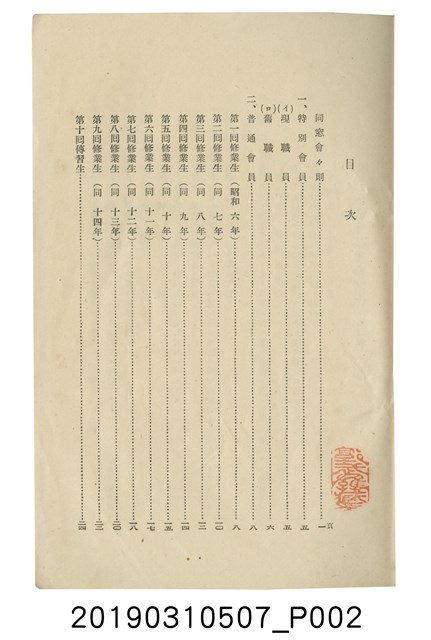 目次
同窓會々則……一頁
一、特別會員……五
(イ)現職員……五
(ロ)舊職員……六
二、普通會員……八
第一回修業生(昭和六年)……八
第二回修業生(同七年)……一〇
第三回修業生(同八年)……一二
第四回修業生(同九年)……一四
第五回修業生(同十年)……一五
第六回修業生(同十一年)……一七
第七回修業生(同十二年)……一八
第八回修業生(同十三年)……二〇
第九回修業生(同十四年)……二二
第十回傳習生……二四
20190310507_P002